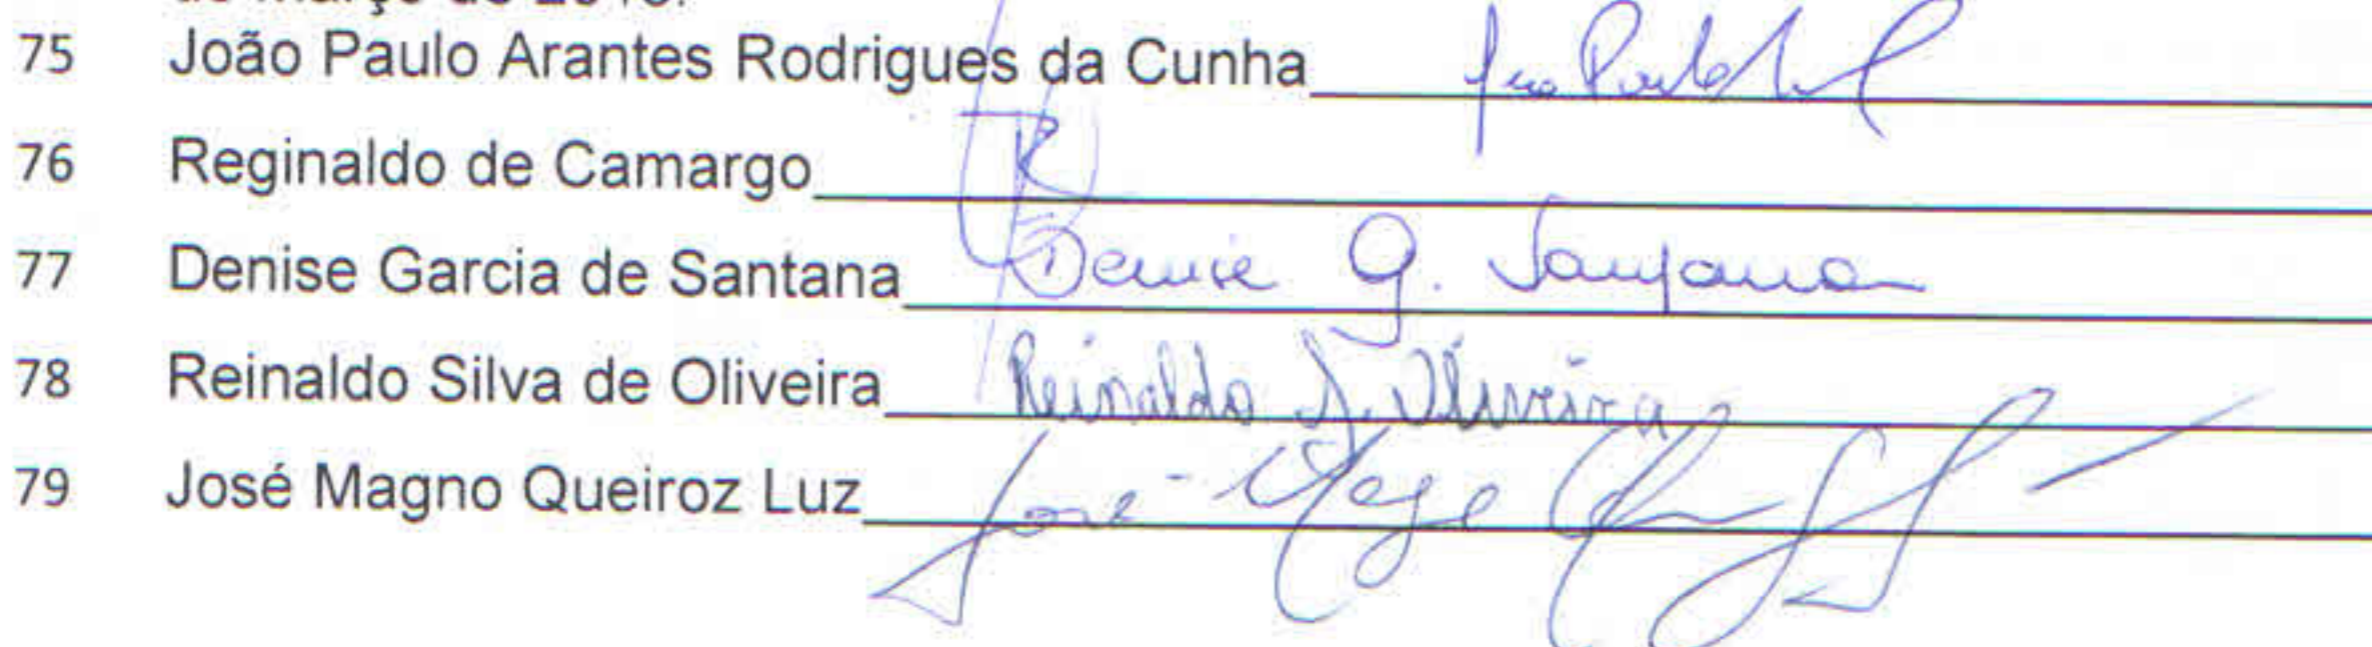 de março de
75 João Paulo Arantes Rodrigues da Cunha
76 Reginaldo de Camargo
77 Denise Garcia de Santana Denise G. Santana
78 Reinaldo Silva de Oliveira Reinaldo S. Oliveira
79 José Magno Queiroz Luz José